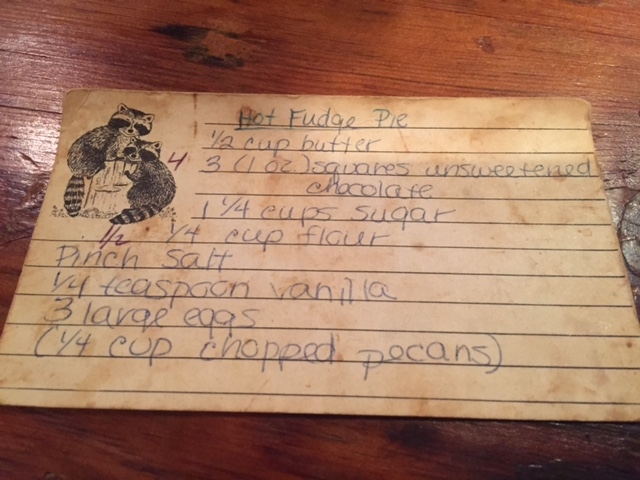 Hot Fudge Pie
1/2 cup butter
4 3 (1 oz) squares unsweetened
chocolate
1 1/4 cups sugar
1/2 1/4 cup flour
Pinch salt
1/4 teaspoon vanilla
3 large eggs
(1/4 cup chopped pecans)